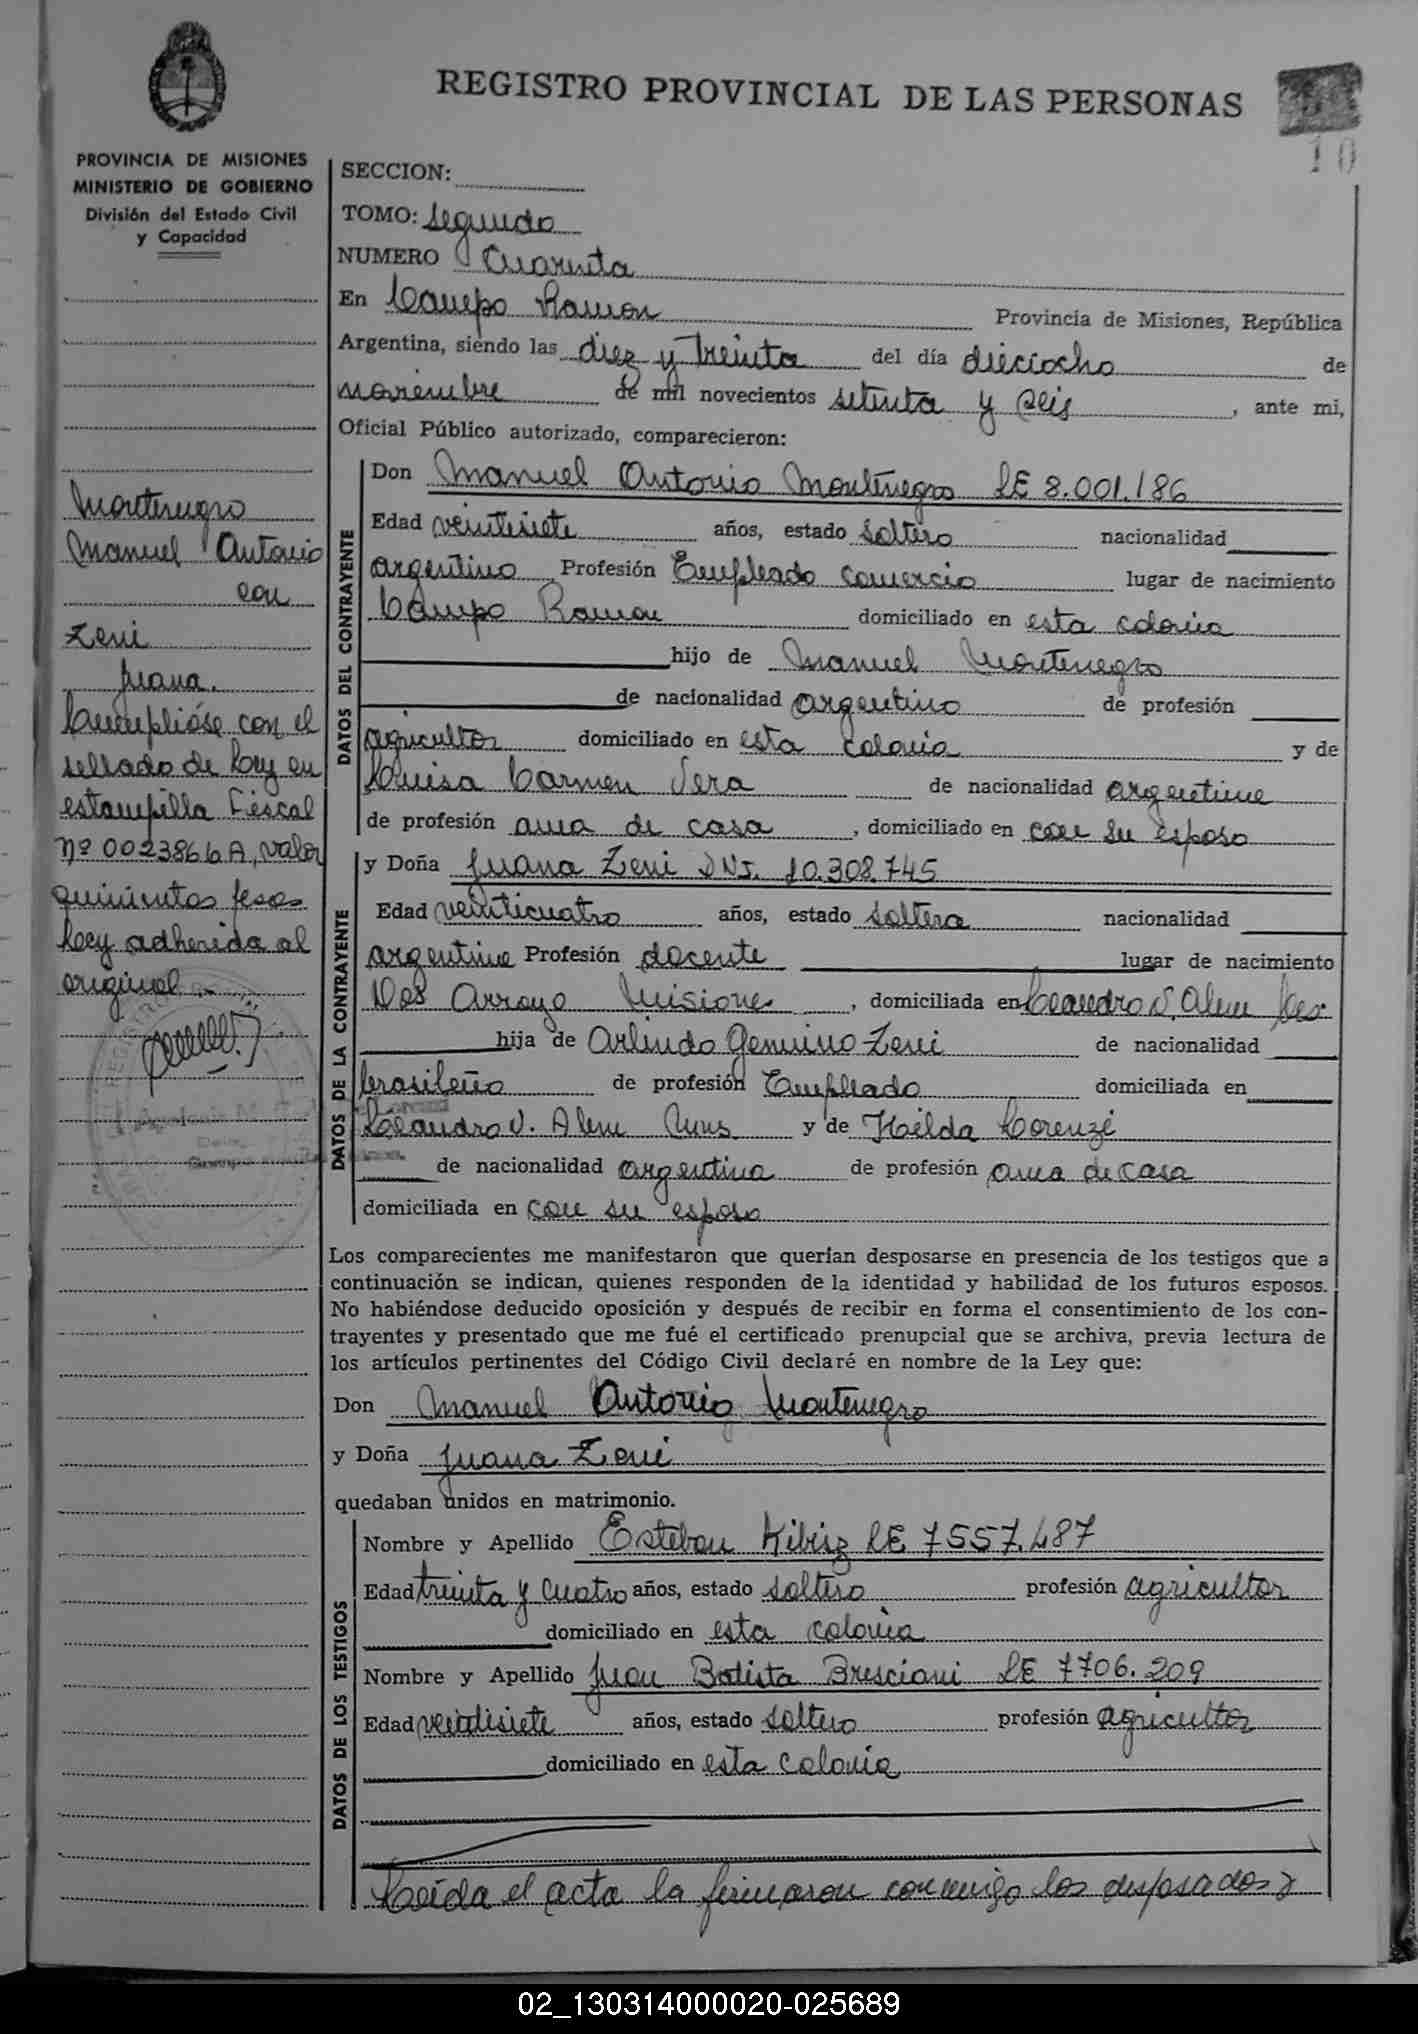 REGISTRO PROVINCIAL DE LAS PERSONAS
10
PROVINCIA DE MISIONES
MINISTERIO DE GOBIERNO
División del Estado Civil
y Capacidad
Montenegro
Manuel Antonio
con
Zeni
Juana.
Cumplióse con el
sellado de Ley en
estampilla Fiscal
Nº 0023866A, valor
quinientos pesos
Ley adherida al
original
SECCION:
TOMO: Segundo
NUMERO Cuarenta
En Campo Ramon Provincia de Misiones, República
Argentina, siendo las diez y treinta del día dieciocho de
noviembre de mil novecientos setenta y seis, ante mi,
Oficial Público autorizado, comparecieron:
DATOS DEL CONTRAYENTE
Don Manuel Antonio Montenegro LE 8.001.186
Edad veintisiete años, estado soltero nacionalidad
argentino Profesión Empleado comercio lugar de nacimiento
Campo Ramon domiciliado en esta colonia
hijo de Manuel Montenegro
de nacionalidad argentino de profesión
agricultor domiciliado en esta colonia y de
Luisa Carmen Vera de nacionalidad argentina
de profesión ama de casa, domiciliado en con su esposo
DATOS DE LA CONTRAYENTE
y Doña Juana Zeni DNI. 10.308.745
Edad veinticuatro años, estado soltera nacionalidad
argentina Profesión docente lugar de nacimiento
Dos Arroyo Misiones, domiciliada en Leandro N. Alem
hija de Arlindo Genuino Zeni de nacionalidad
brasileño de profesión Empleado domiciliada en
Leandro N. Alem Mnes y de Hilda Lorenzi
de nacionalidad argentina de profesión ama de casa
domiciliada en con su esposo
Los comparecientes me manifestaron que querían desposarse en presencia de los testigos que a
continuación se indican, quienes responden de la identidad y habilidad de los futuros esposos.
No habiéndose deducido oposición y después de recibir en forma el consentimiento de los con-
trayentes y presentado que me fué el certificado prenupcial que se archiva, previa lectura de
los artículos pertinentes del Código Civil declaré en nombre de la Ley que:
Don Manuel Antonio Montenegro
y Doña Juana Zeni
quedaban unidos en matrimonio.
DATOS DE LOS TESTIGOS
Nombre y Apellido Esteban Kibisz LE 7557.487
Edad treinta y cuatro años, estado soltero profesión agricultor
domiciliado en esta colonia
Nombre y Apellido Juan Batista Bresciani LE 7706.209
Edad veintisiete años, estado soltero profesión agricultor
domiciliado en esta colonia
Leída el acta la firmaron conmigo los desposados y
02_130314000020-025689